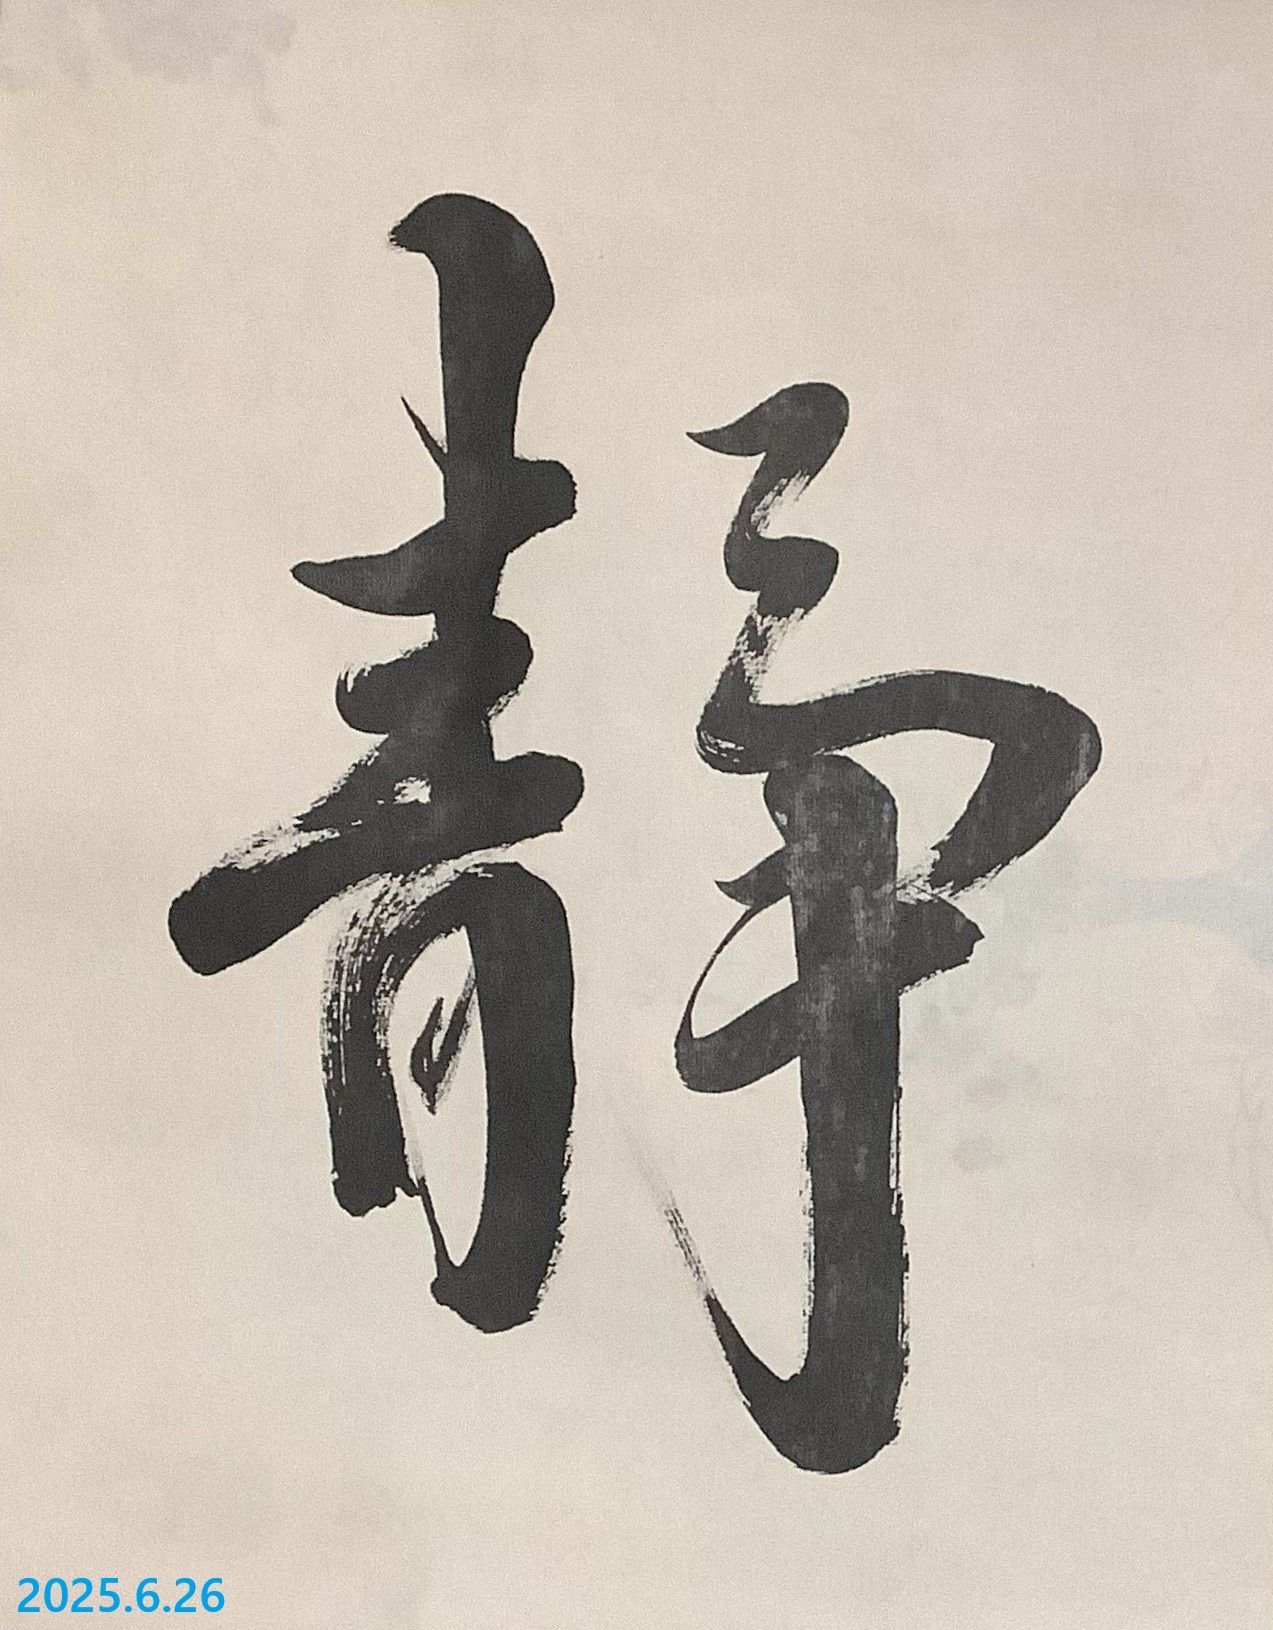 靜
2025.6.26